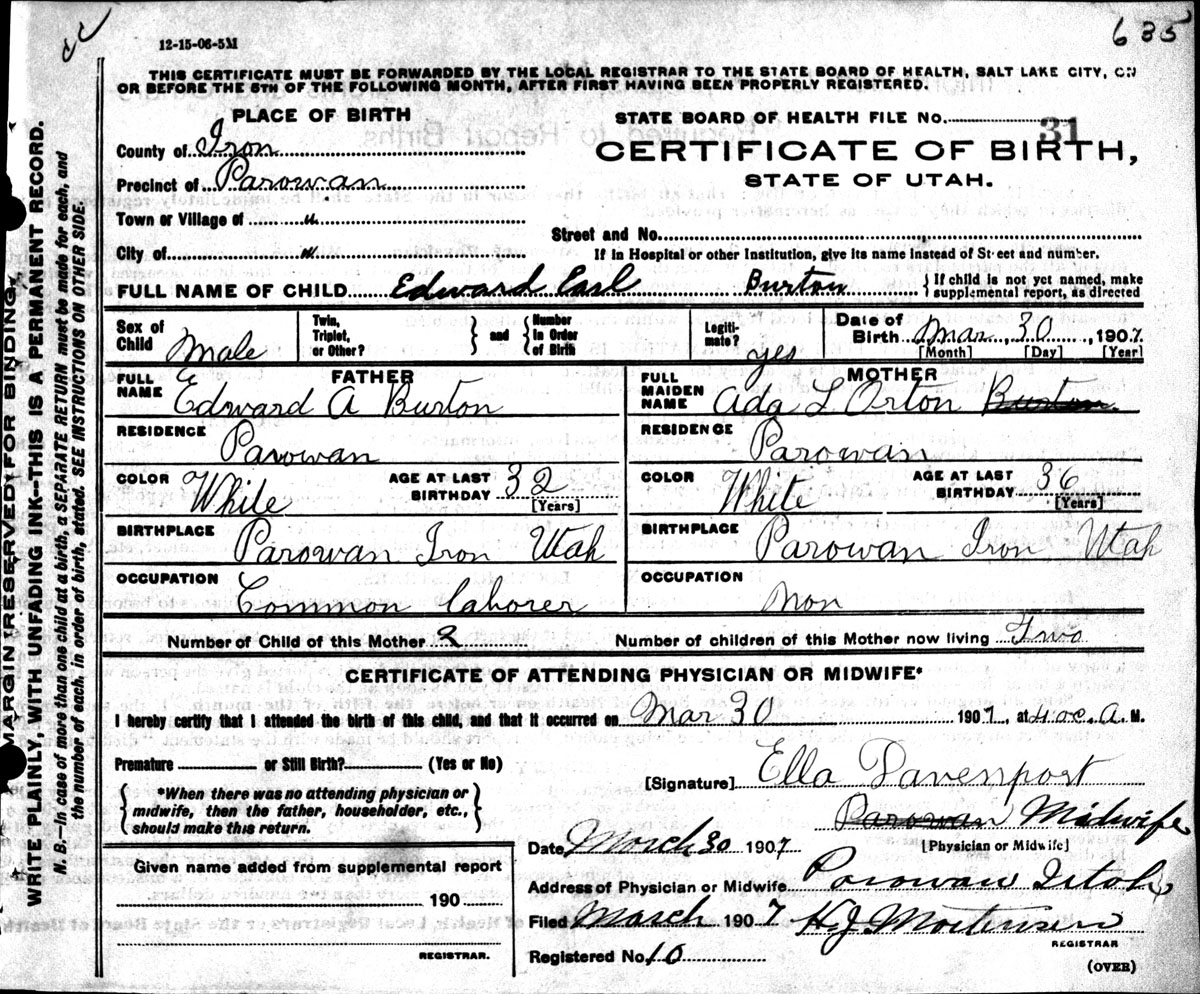 635
12-15-06-5M
THIS CERTIFICATE MUST BE FORWARDED BY THE LOCAL REGISTRAR TO THE STATE BOARD OF HEALTH, SALT LAKE CITY, ON
OR BEFORE THE 5TH OF THE FOLLOWING MONTH, AFTER FIRST HAVING BEEN PROPERLY REGISTERED.
MARGIN RESERVED FOR BINDING.
WRITE PLAINLY, WITH UNFADING INK—THIS IS A PERMANENT RECORD.
N. B.—In case of more than one child at a birth, a SEPARATE RETURN must be made for each, and
the number of each, in order of birth, stated. SEE INSTRUCTIONS ON OTHER SIDE.
PLACE OF BIRTH
County of Iron
Precinct of Parowan
Town or Village of "
City of "
STATE BOARD OF HEALTH FILE NO. 31
CERTIFICATE OF BIRTH,
STATE OF UTAH.
Street and No.
If in Hospital or other Institution, give its name instead of Street and number.
FULL NAME OF CHILD Edward Earl Burton
If child is not yet named, make
supplemental report, as directed
Sex of Child Male
Twin, Triplet, or Other? and Number in Order of Birth
Legitimate? yes
Date of Birth Mar 30, 1907
[Month] [Day] [Year]
FATHER
FULL NAME Edward A Burton
RESIDENCE Parowan
COLOR White AGE AT LAST BIRTHDAY 32
[Years]
BIRTHPLACE Parowan Iron Utah
OCCUPATION Common laborer
MOTHER
FULL MAIDEN NAME Ada L Orton Burton
RESIDENCE Parowan
COLOR White AGE AT LAST BIRTHDAY 36
[Years]
BIRTHPLACE Parowan Iron Utah
OCCUPATION Non
Number of Child of this Mother 2 Number of children of this Mother now living Two
CERTIFICATE OF ATTENDING PHYSICIAN OR MIDWIFE*
I hereby certify that I attended the birth of this child, and that it occurred on Mar 30 1907, at 4 oc. A. M.
Premature or Still Birth? (Yes or No)
*When there was no attending physician or
midwife, then the father, householder, etc.,
should make this return.
[Signature] Ella Davenport
Parowan Midwife
[Physician or Midwife]
Date March 30 1907
Address of Physician or Midwife Parowan Utah
Filed March 1907 H.J. Mortensen
REGISTRAR
Registered No. 10
Given name added from supplemental report
190
REGISTRAR.
(OVER)